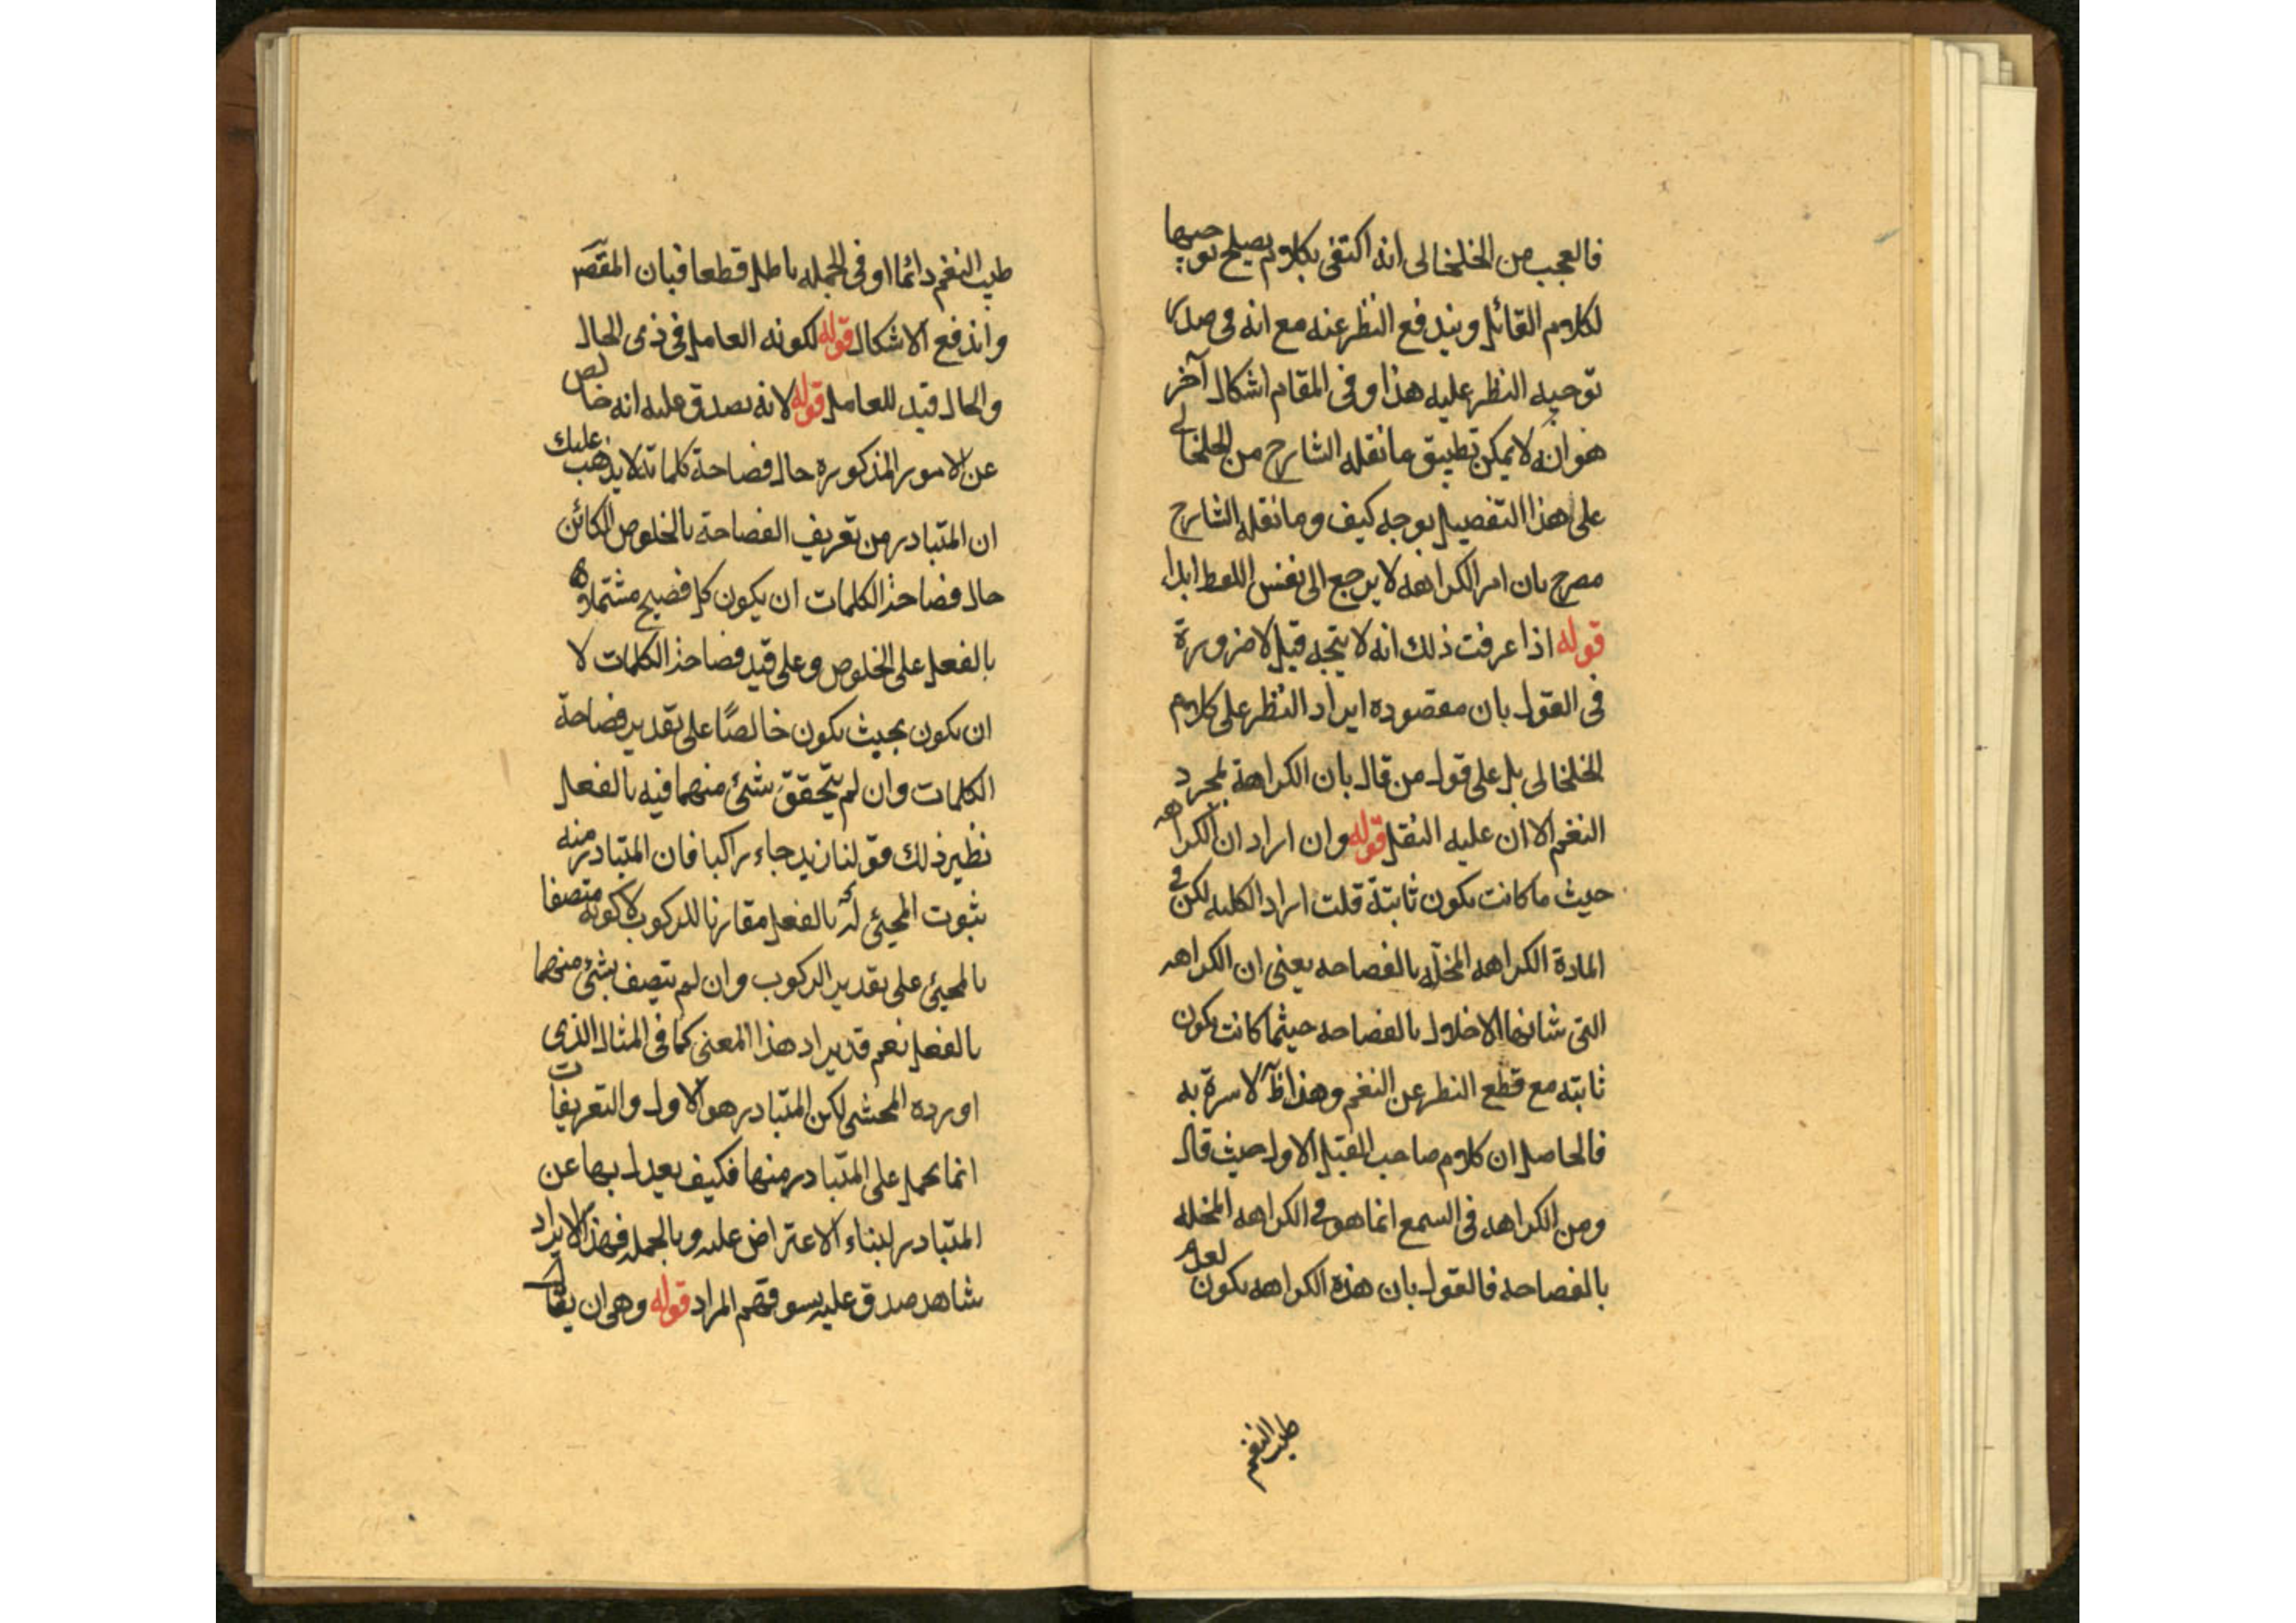 فالعجب من الخلخالى انه اكتفى بكلام يصلح توجيها
لكلام القائل ويندفع النظر عنه مع انه فى صدد
توجيه النظر عليه هذا وفى المقام اشكال آخر
هو انه لا يمكن تطبيق ما نقله الشارح من الخلخالى
على هذا التفصيل بوجه كيف وما نقله الشارح
مصرح بان امر الكراهه لا يرجع الى نفس اللفظ ابدا
قوله اذا عرفت ذلك انه لا يتجه قيل لا ضرورة
فى القول بان مقصوده ايراد النظر على كلام
الخلخالى بل على قول من قال بان الكراهة لمجرد
النغم الا ان عليه النقل قوله وان اراد ان الكراهه
حيث ما كانت يكون ثابتة قلت اراد الكليه لكن فى
المادة الكراهه المخلّه بالفصاحه يعنى ان الكراهه
التى شانها الاخلال بالفصاحه حيثما كانت يكون
ثابته مع قطع النظر عن النغم وهذا ظآ لا سرة به
فالحاصل ان كلام صاحب القيل الاول حيث قال
ومن الكراهه فى السمع انما هو فى الكراهه المخله
بالفصاحه فالقول بان هذه الكراهه يكون لعدم
طيب النغم
طيب النغم دائما او فى الجمله باطل قطعا فبان المقصر
واندفع الاشكال قوله لكونه العامل فى ذى الحال
والحال قيد للعامل قوله لانه يصدق عليه انه خالص
عن الامور المذكوره حال فصاحة كلماته لا يذهب عليك
ان المتبادر من تعريف الفصاحة بالخلوص الكائن
حال فصاحة الكلمات ان يكون كل فصيح مشتملا
بالفعل على الخلوص وعلى قيد فصاحة الكلمات لا
ان يكون بحيث يكون خالصًا على تقدير فصاحة
الكلمات وان لم يتحقق شئ منهما فيه بالفعل
نظير ذلك قولنا زيد جاء راكبا فان المتبادر منه
ثبوت المجيئ له بالفعل مقارنا للركوب لا كونه متصفا
بالمجيئ على تقدير الركوب وان لم يتصف بشئ منهما
بالفعل نعم قد يراد هذا المعنى كما فى المثال الذى
اورده المحشى لكن المتبادر هو الاول والتعريفات
انما يحمل على المتبادر منها فكيف يعدل بها عن
المتبادر لبناء الاعتراض عليه وبالجمله فهذا الايراد
شاهد صدق عليه بسو فهم المراد قوله وهى ان يقال